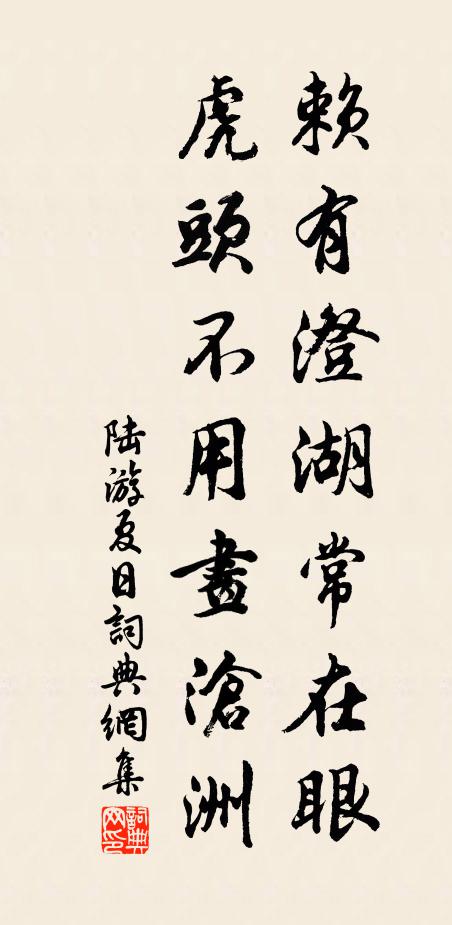 赖有澄湖常在眼
虎頭不用畫滄洲
陆游夏日詞典網集
詞典
网印